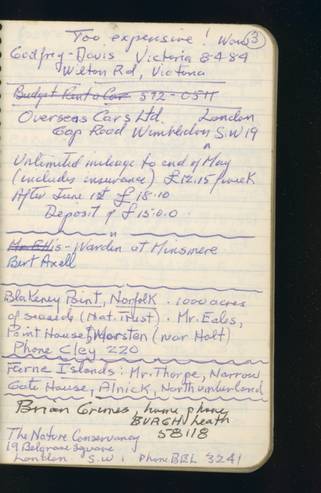 Too expensive! Won 3
Godfrey-Davis Victoria 8484
Wilton Rd, Victoria
Budget Rent a Car 592-0511
Overseas Cars Ltd. London
Gap Road Wimbledon S.W19
Unlimited mileage to end of May
(includes insurance) £12.15/week
After June 1st £18.10
Deposit of £15.0.0
Mr. Ellis - Warden at Minsmere
Bert Axell
Blakeney Point, Norfolk. 1000 acres
of seaside (Nat. Trust). Mr. Eales,
Point House, Morston (near Holt)
Phone Cley 220
Farne Islands: Mr. Thorpe, Narrow
Gate House, Alnick, Northumberland
Brian Grimes, home phone
BURGH Heath
58118
The Nature Conservancy
19 Belgrave Square
London S.W.1 Phone BEL 3241